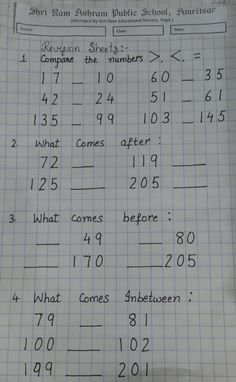 Shri Ram Ashram Public School, Amritsar
(Managed By Shri Ram Educational Society, Regd.)
Name: Class: Date:
Revision Sheets:-
1. Compare the numbers >, <, =
17 __ 10 60 __ 35
42 __ 24 51 __ 61
135 __ 99 103 __ 145
2. What comes after :
72 __ 119 __
125 __ 205 __
3. What comes before :
__ 49 __ 80
__ 170 __ 205
4. What comes Inbetween :
79 __ 81
100 __ 102
199 __ 201